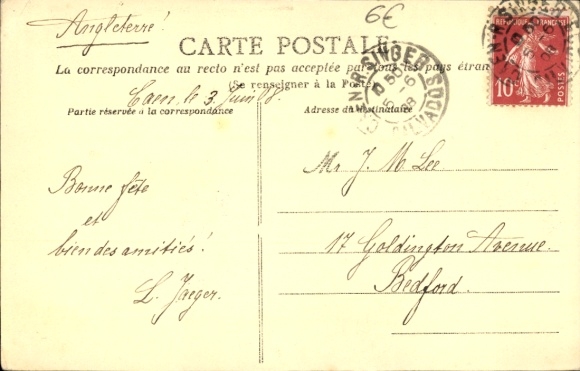 6€
Angleterre!
CARTE POSTALE
La correspondance au recto n'est pas acceptée par tous les pays étran
(Se renseigner à la Poste)
Caen, le 3 Juin 08.
Partie réservée à la correspondance
Adresse du destinataire
REPUBLIQUE FRANÇAISE
10
POSTES
CAEN R SINGER
5 -6
08
CALVADOS
Bonne fête
et
bien des amitiés!
L. Jaeger.
Mr J. M. Lee
17 Goldington Avenue.
Bedford.